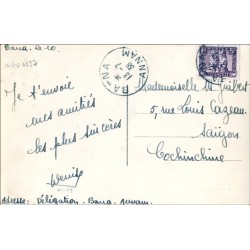 Bana. le 10.
Je t'envoie
mes amitiés
les plus sincères
Denise
Adresse: Délégation - Bana. Annam.
BANA
ANNAM
Mademoiselle M. Guibert
5, rue Louis Cazeau
Saïgon
Cochinchine